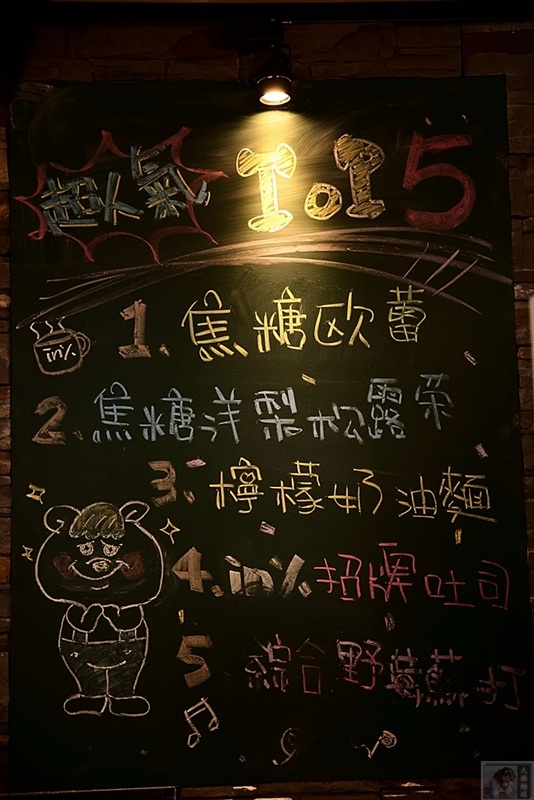 超人氣 TOP 5
in%
1. 焦糖歐蕾
2. 焦糖洋梨松露茶
3. 檸檬奶油麵
4. in% 招牌吐司
5 綜合野莓蘇打